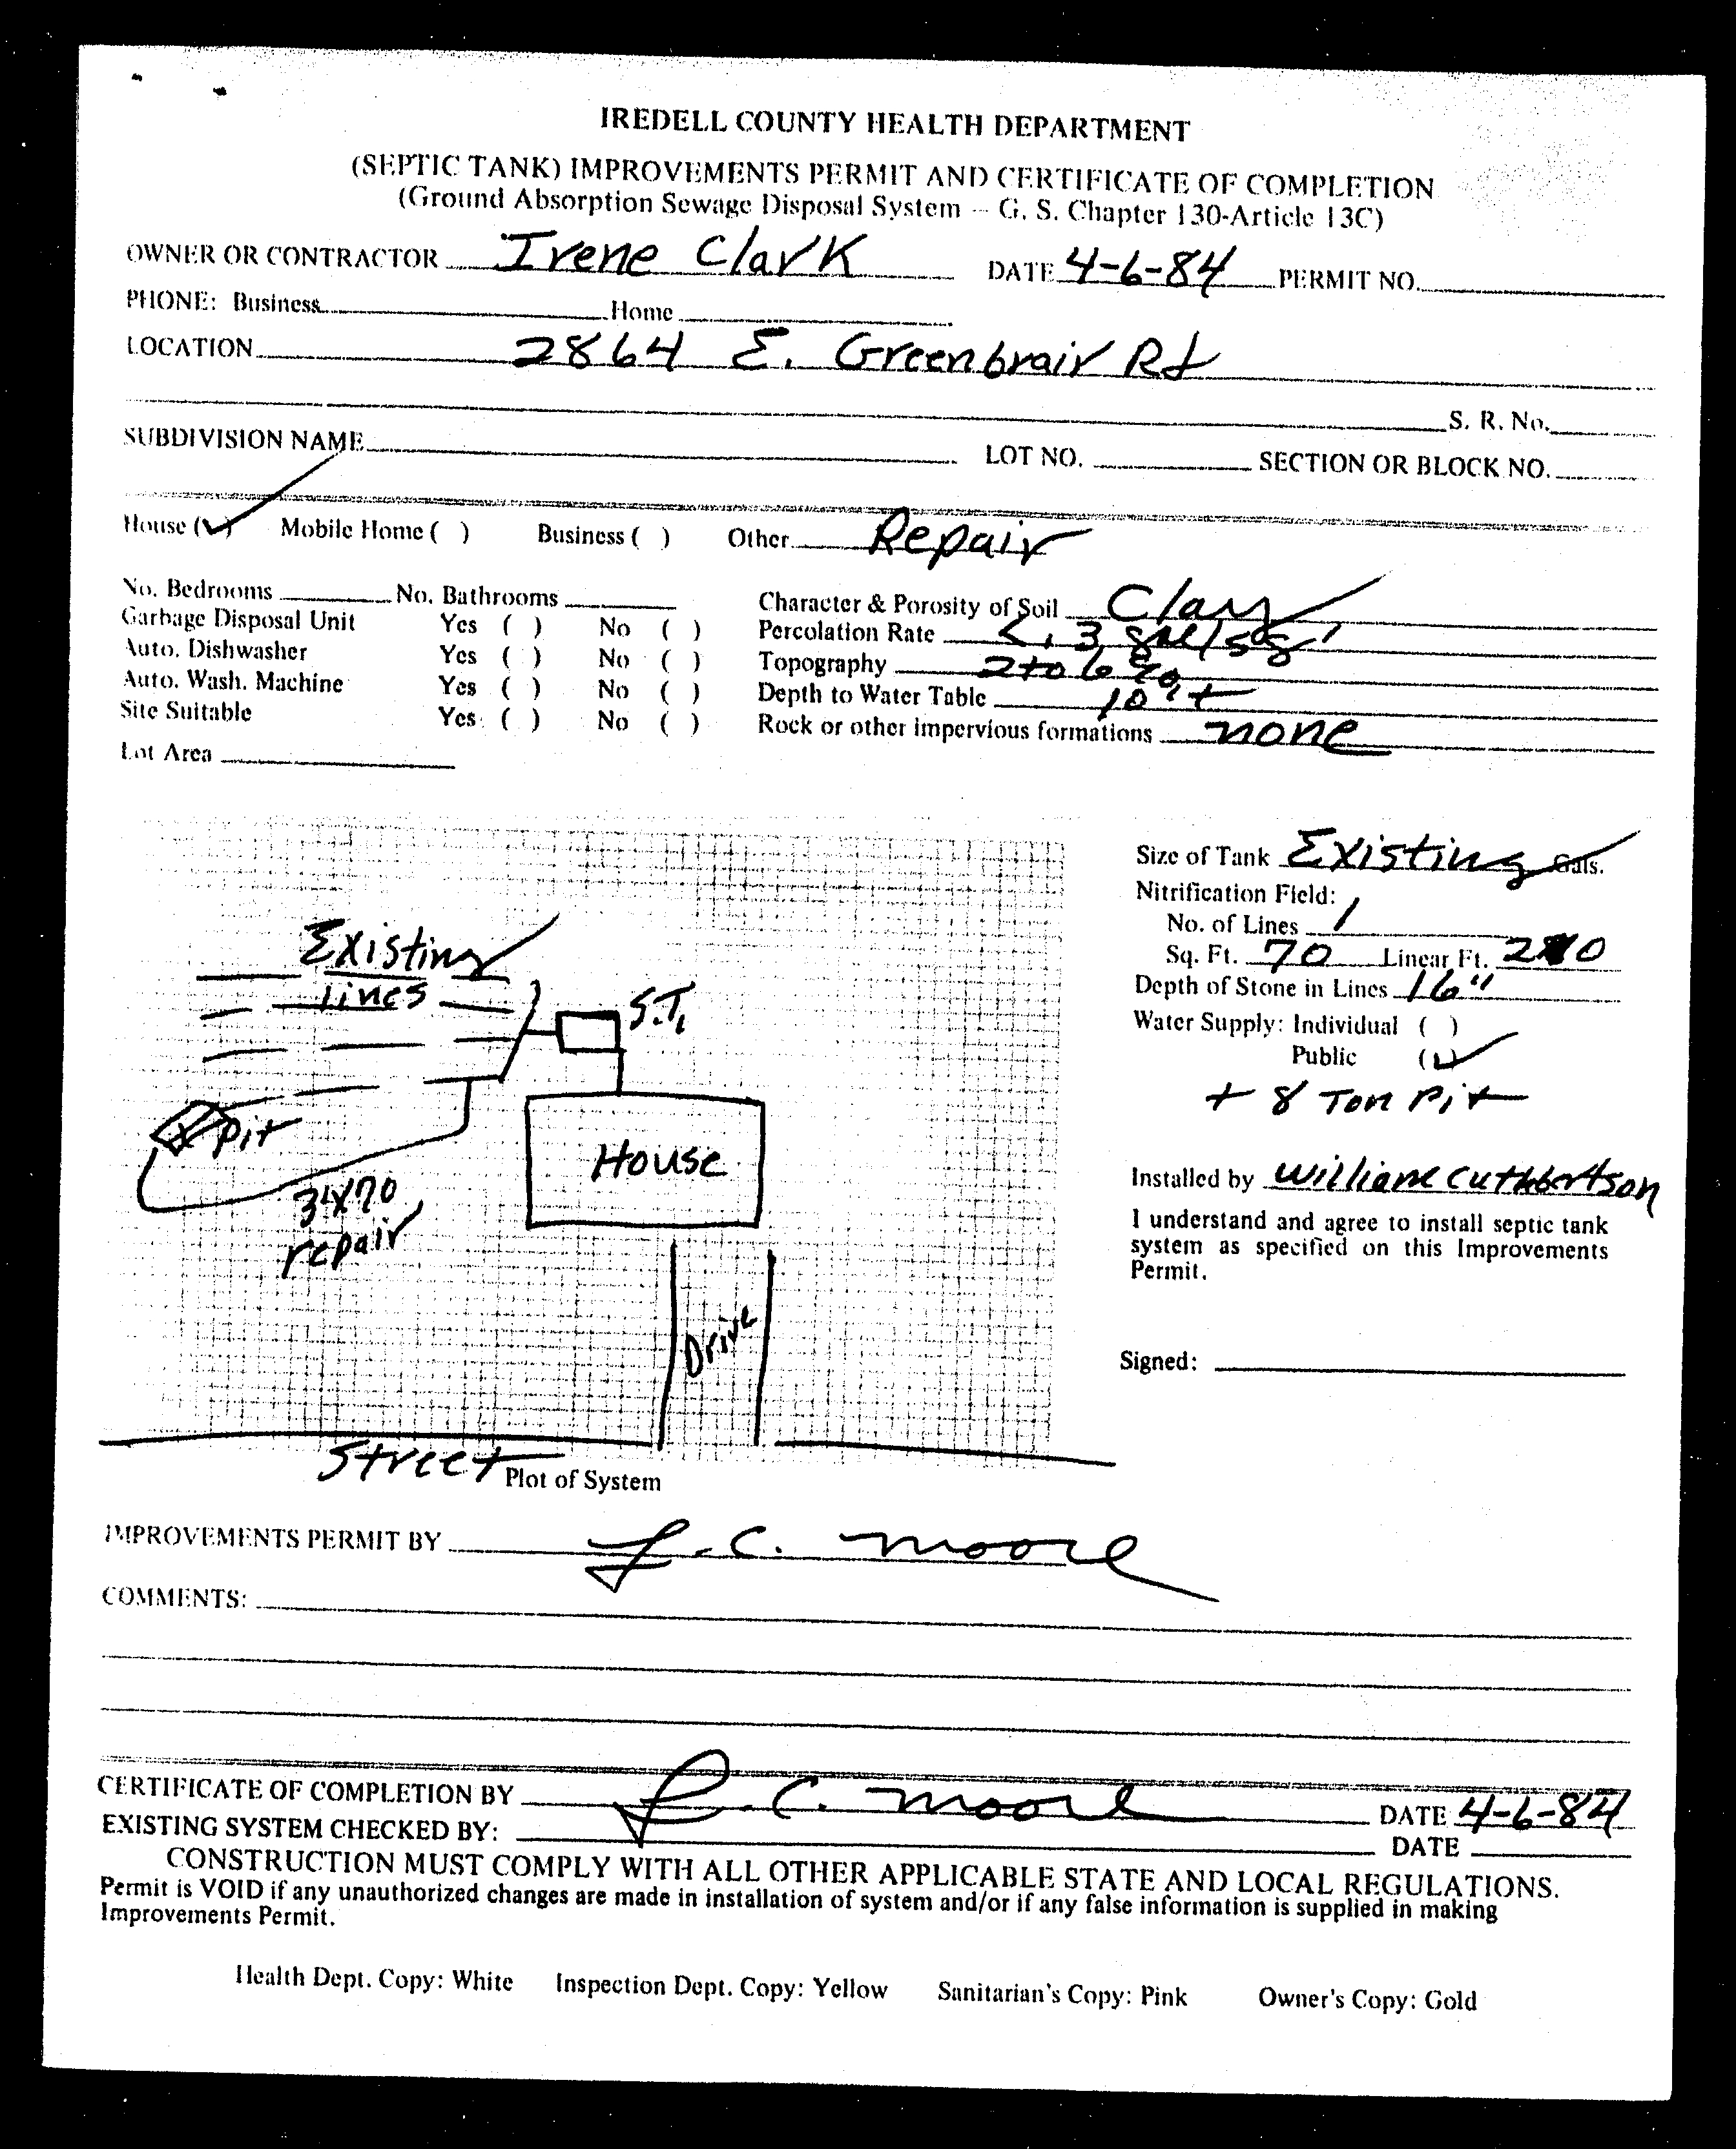 IREDELL COUNTY HEALTH DEPARTMENT
(SEPTIC TANK) IMPROVEMENTS PERMIT AND CERTIFICATE OF COMPLETION
(Ground Absorption Sewage Disposal System - G. S. Chapter 130-Article 13C)
OWNER OR CONTRACTOR Irene Clark DATE 4-6-84 PERMIT NO.
PHONE: Business Home
LOCATION 2864 E. Greenbrair Rd
S. R. No.
SUBDIVISION NAME LOT NO. SECTION OR BLOCK NO.
House (✓) Mobile Home ( ) Business ( ) Other Repair
No. Bedrooms No. Bathrooms
Garbage Disposal Unit Yes ( ) No ( )
Auto. Dishwasher Yes ( ) No ( )
Auto. Wash. Machine Yes ( ) No ( )
Site Suitable Yes ( ) No ( )
Lot Area
Character & Porosity of Soil Clay
Percolation Rate <.3 gal/sq'
Topography 2 to 6 %
Depth to Water Table 10' +
Rock or other impervious formations none
Existing
lines
S.T.
Pit
House
3'X70
repair
Drive
Street
Plot of System
Size of Tank Existing Gals.
Nitrification Field:
No. of Lines 1
Sq. Ft. 70 Linear Ft. 210
Depth of Stone in Lines 16"
Water Supply: Individual ( )
Public (✓)
+ 8 Ton Pit
Installed by William Cuthbertson
I understand and agree to install septic tank
system as specified on this Improvements
Permit.
Signed:
IMPROVEMENTS PERMIT BY J.C. Moore
COMMENTS:
CERTIFICATE OF COMPLETION BY J.C. Moore DATE 4-6-84
EXISTING SYSTEM CHECKED BY: DATE
CONSTRUCTION MUST COMPLY WITH ALL OTHER APPLICABLE STATE AND LOCAL REGULATIONS.
Permit is VOID if any unauthorized changes are made in installation of system and/or if any false information is supplied in making
Improvements Permit.
Health Dept. Copy: White Inspection Dept. Copy: Yellow Sanitarian's Copy: Pink Owner's Copy: Gold